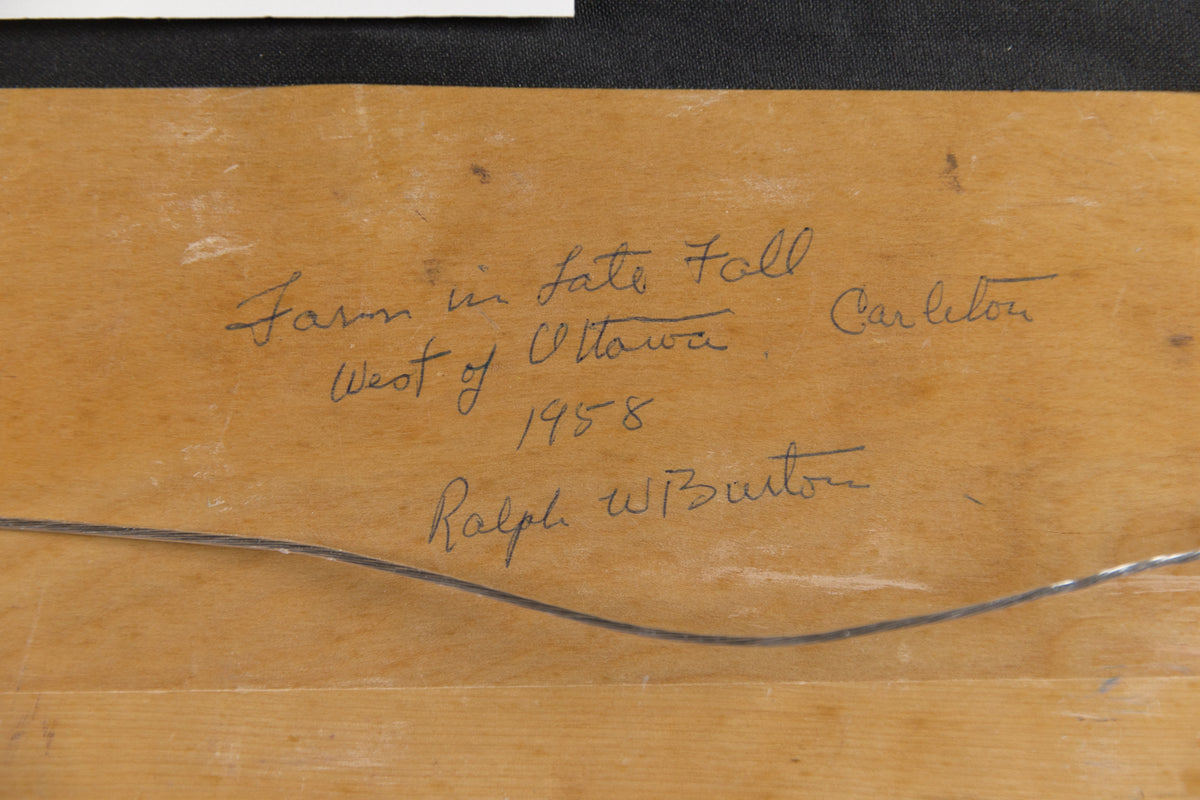 Farm in Late Fall
West of Ottawa, Carleton
1958
Ralph W Burton